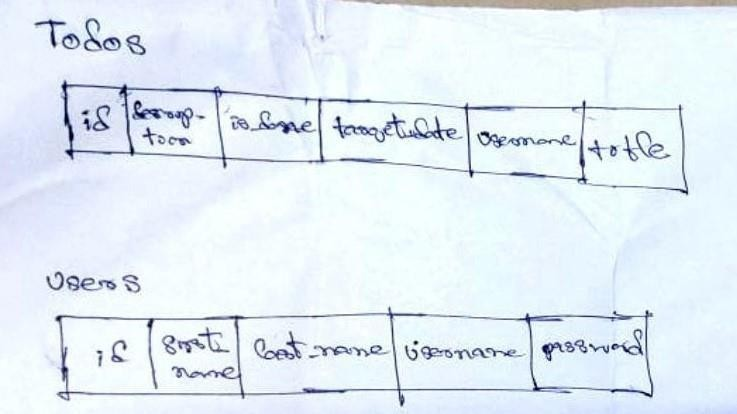 Todos
id descrip-tion is_done target_date username title
users
id first_name last_name username password